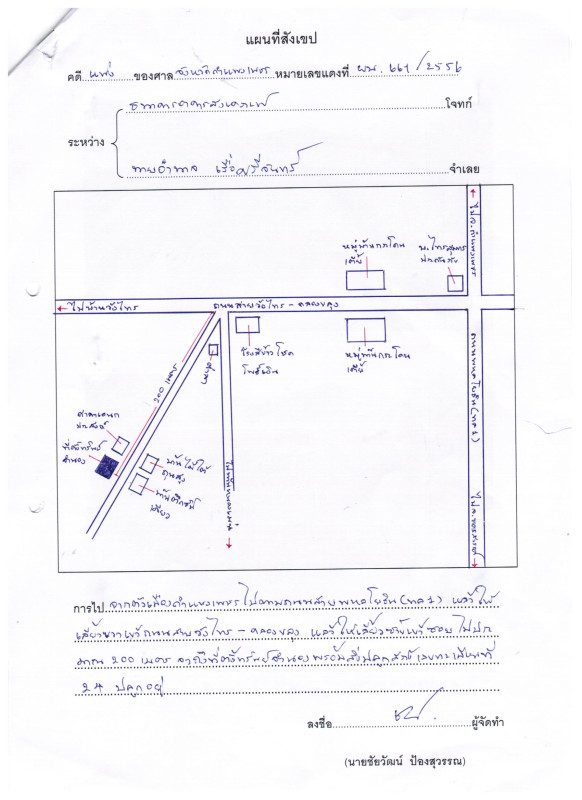 แผนที่สังเขป
คดี แพ่ง ของศาล จังหวัดกำแพงเพชร หมายเลขแดงที่ ผบ. 661 / 2556
ธนาคารอาคารสงเคราะห์ โจทก์
ระหว่าง
นายอำพล จำเลย
ไป จ.กำแพงเพชร
หมู่บ้าน
ถนนสายวังไทร - คลองขลุง
ไปบ้านวังไทร
โรงสีข้าวโชค
หมู่บ้าน
ศาลา
200 เมตร
ถนนพหลโยธิน (ทล.1)
ศาลาเอนก
ประสงค์
ที่ตั้งทรัพย์
จำนอง
บ้านไม้ใต้
ถุนสูง
บ้านตึกชั้น
เดียว
ไป จ.นครสวรรค์
การไป จากตัวเมืองกำแพงเพชร ไปตามถนนสายพหลโยธิน (ทล.1) แล้วให้
เลี้ยวขวาเข้าถนนสายวังไทร - คลองขลุง แล้วให้เลี้ยวซ้ายเข้าซอย ไปประ
มาณ 200 เมตร จะถึงที่ตั้งทรัพย์จำนองพร้อมสิ่งปลูกสร้างเลขทะเบียนที่
24 ปลูกอยู่
ลงชื่อ ผู้จัดทำ
(นายชัยวัฒน์ ป้องสุวรรณ)